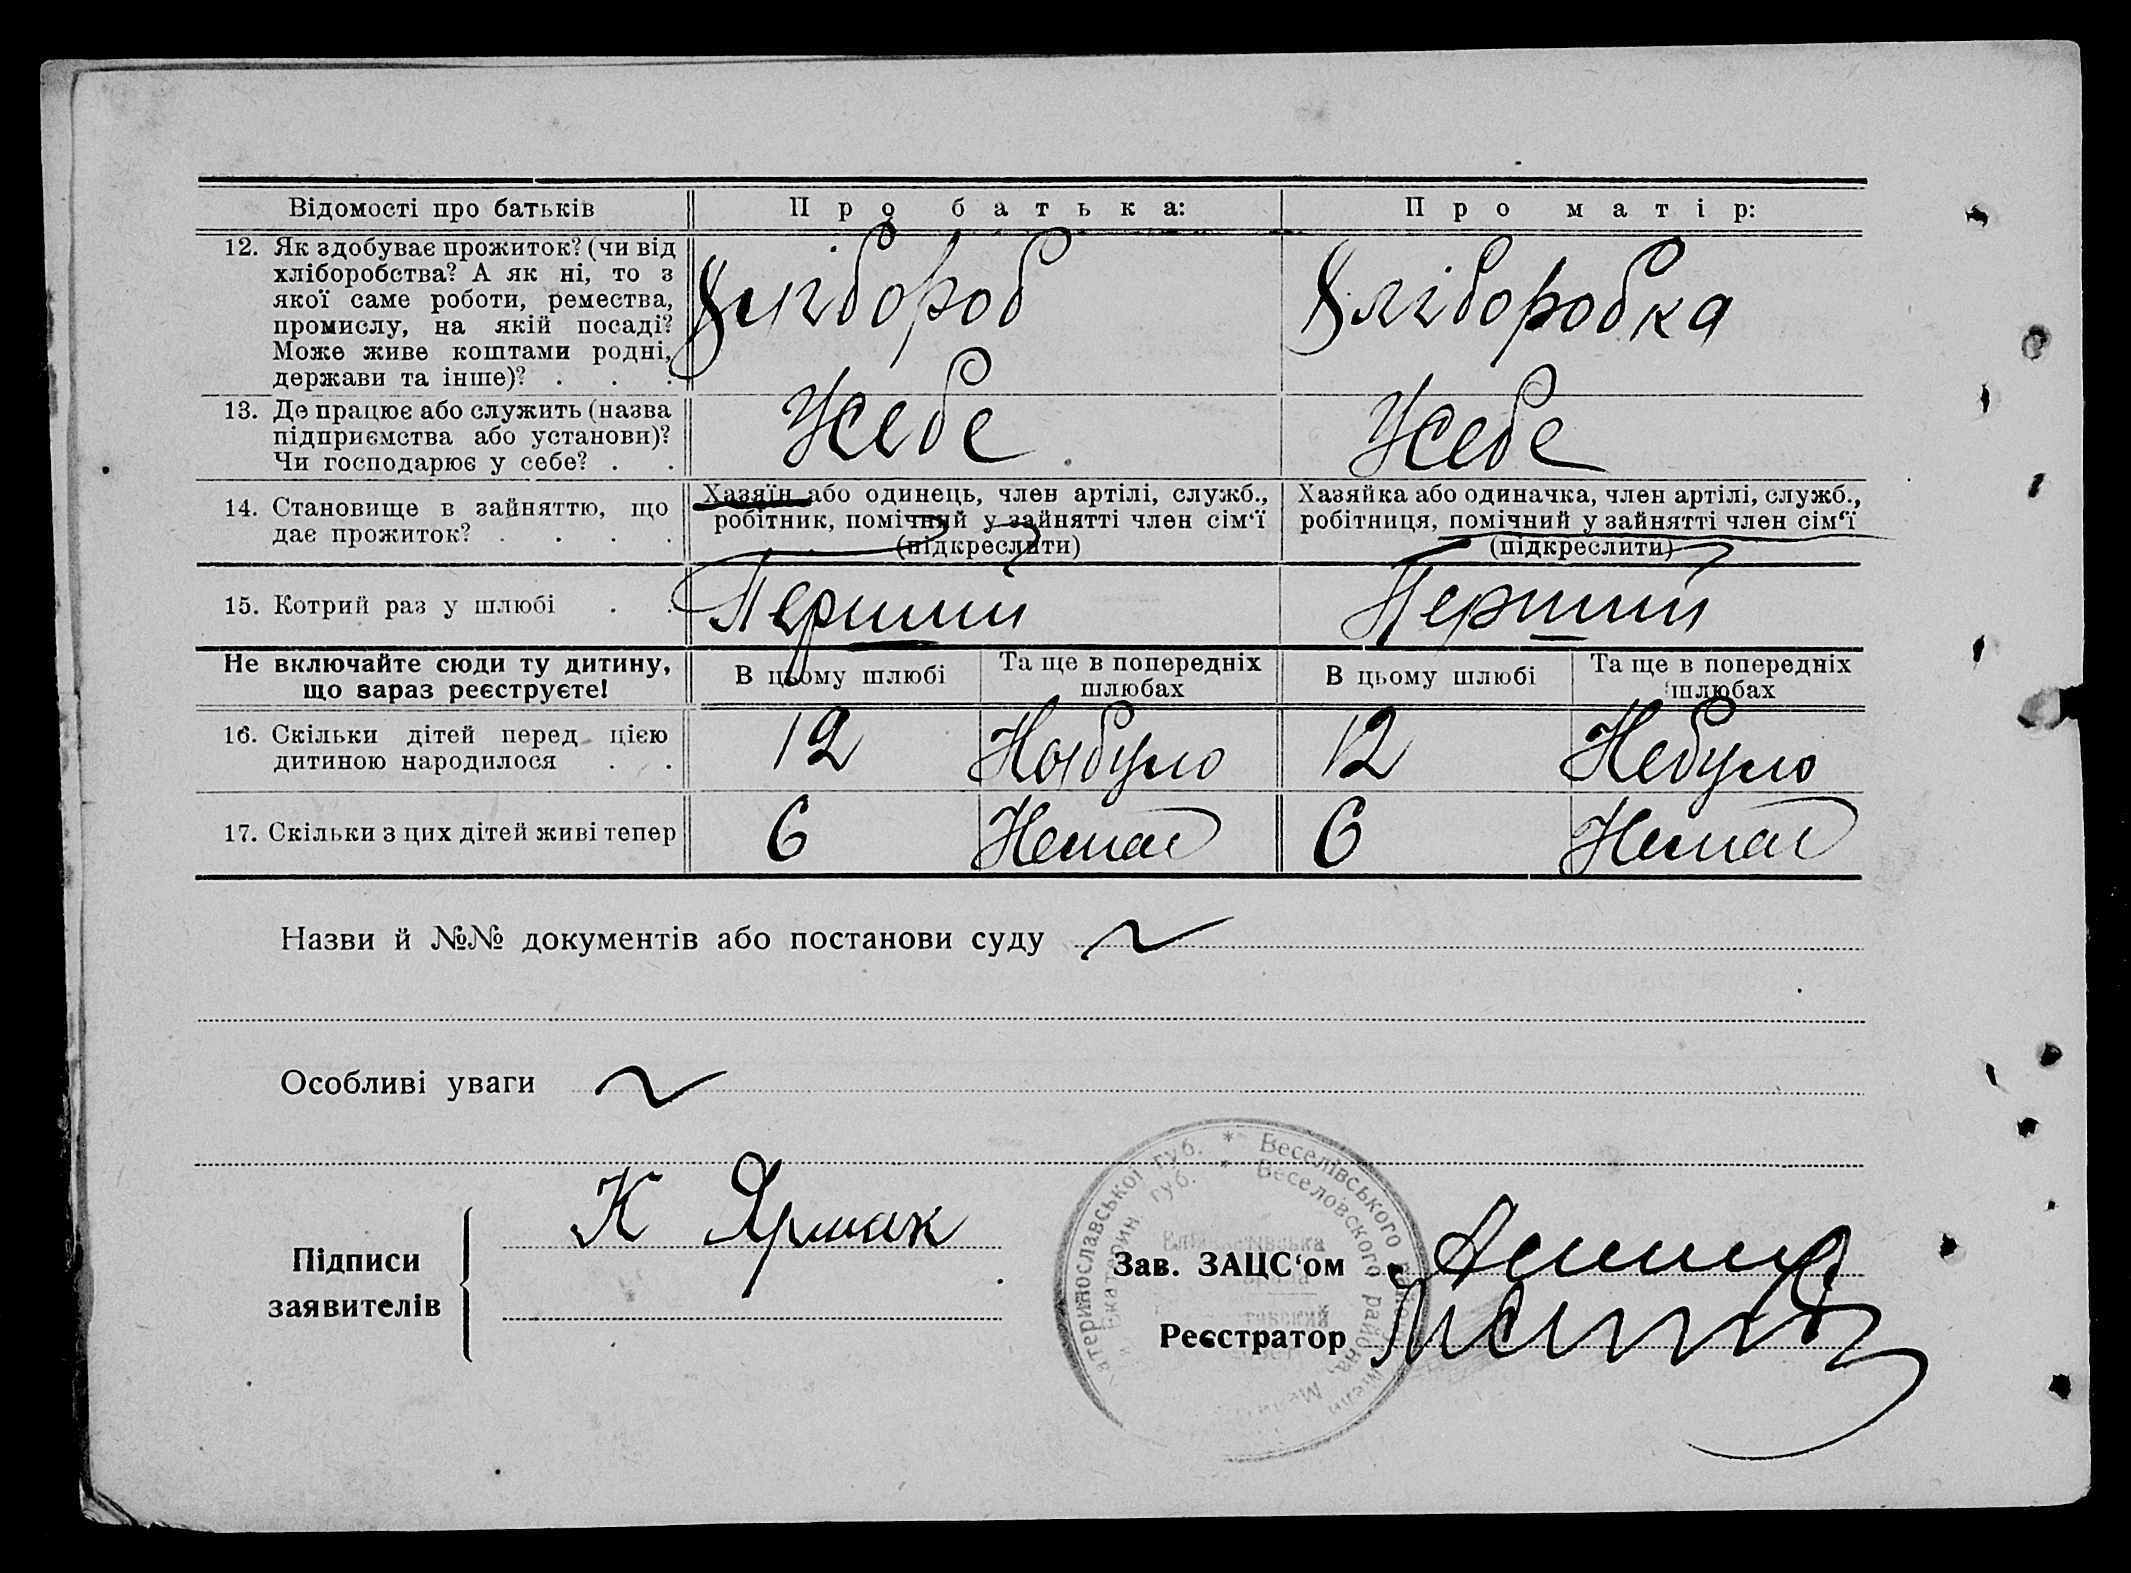 Відомості про батьків
Про батька:
Про матір:
12. Як здобуває прожиток? (чи від
хліборобства? А як ні, то з
якої саме роботи, ремества,
промислу, на якій посаді?
Може живе коштами родні,
держави та інше)? . . .
Хлібороб
Хліборобка
13. Де працює або служить (назва
підприємства або установи)?
Чи господарює у себе? . .
Усебе
Усебе
14. Становище в зайняттю, що
дає прожиток? . . . .
Хазяїн або одинець, член артілі, служб.,
робітник, помічний у зайнятті член сім'ї
(підкреслити)
Хазяйка або одиначка, член артілі, служб.,
робітниця, помічний у зайнятті член сім'ї
(підкреслити)
15. Котрий раз у шлюбі . .
Перший
Перший
Не включайте сюди ту дитину,
що зараз реєструєте!
В цьому шлюбі
Та ще в попередніх
шлюбах
В цьому шлюбі
Та ще в попередніх
шлюбах
16. Скільки дітей перед цією
дитиною народилося . .
12
Небуло
12
Небуло
17. Скільки з цих дітей живі тепер
6
Немає
6
Немає
Назви й №№ документів або постанови суду
Особливі уваги
Підписи
заявителів
К Ярмак
Зав. ЗАЦС'ом
Реєстратор
Катеринославської губ. * Веселівського району
Екатерин. губ. * Веселовского района